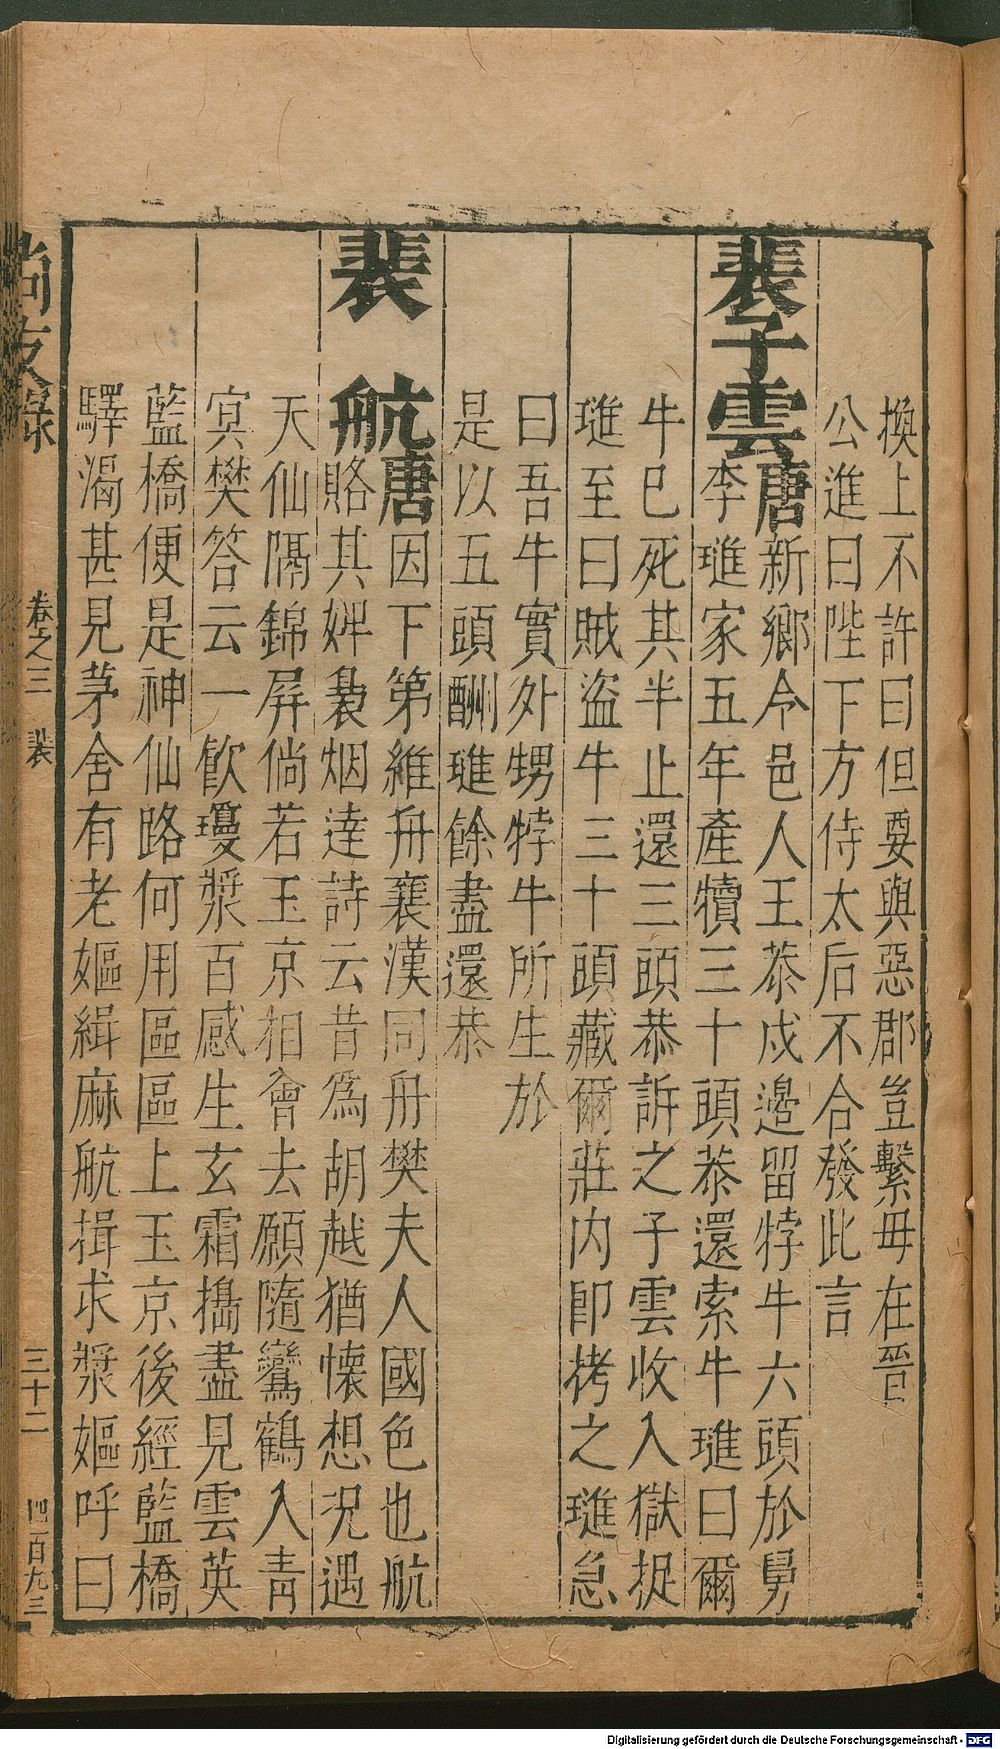 換上不許曰但要與惡郡豈繫毋在晉
公進曰陛下方侍太后不合發此言
裴子雲唐新鄉令邑人王恭戍邊留牸牛六頭於舅
李璡家五年產犢三十頭恭還索牛璡曰爾
牛已死其半止還三頭恭訴之子雲收入獄捉
璡至曰賊盜牛三十頭藏爾莊内即拷之璡急
曰吾牛實外甥牸牛所生於
是以五頭酬璡餘盡還恭
裴航唐因下第維舟襄漢同舟樊夫人國色也航
賂其婢裊烟達詩云昔為胡越猶懷想況遇
天仙隔錦屛倘若玉京相會去願隨鸞鶴入青
冥樊答云一飲瓊漿百感生玄霜搗盡見雲英
藍橋便是神仙路何用區區上玉京後經藍橋
驛渴甚見茅舍有老嫗緝麻航揖求漿嫗呼曰
尚友錄 卷之三 裴 三十二 四百九三
Digitalisierung gefördert durch die Deutsche Forschungsgemeinschaft - DFG